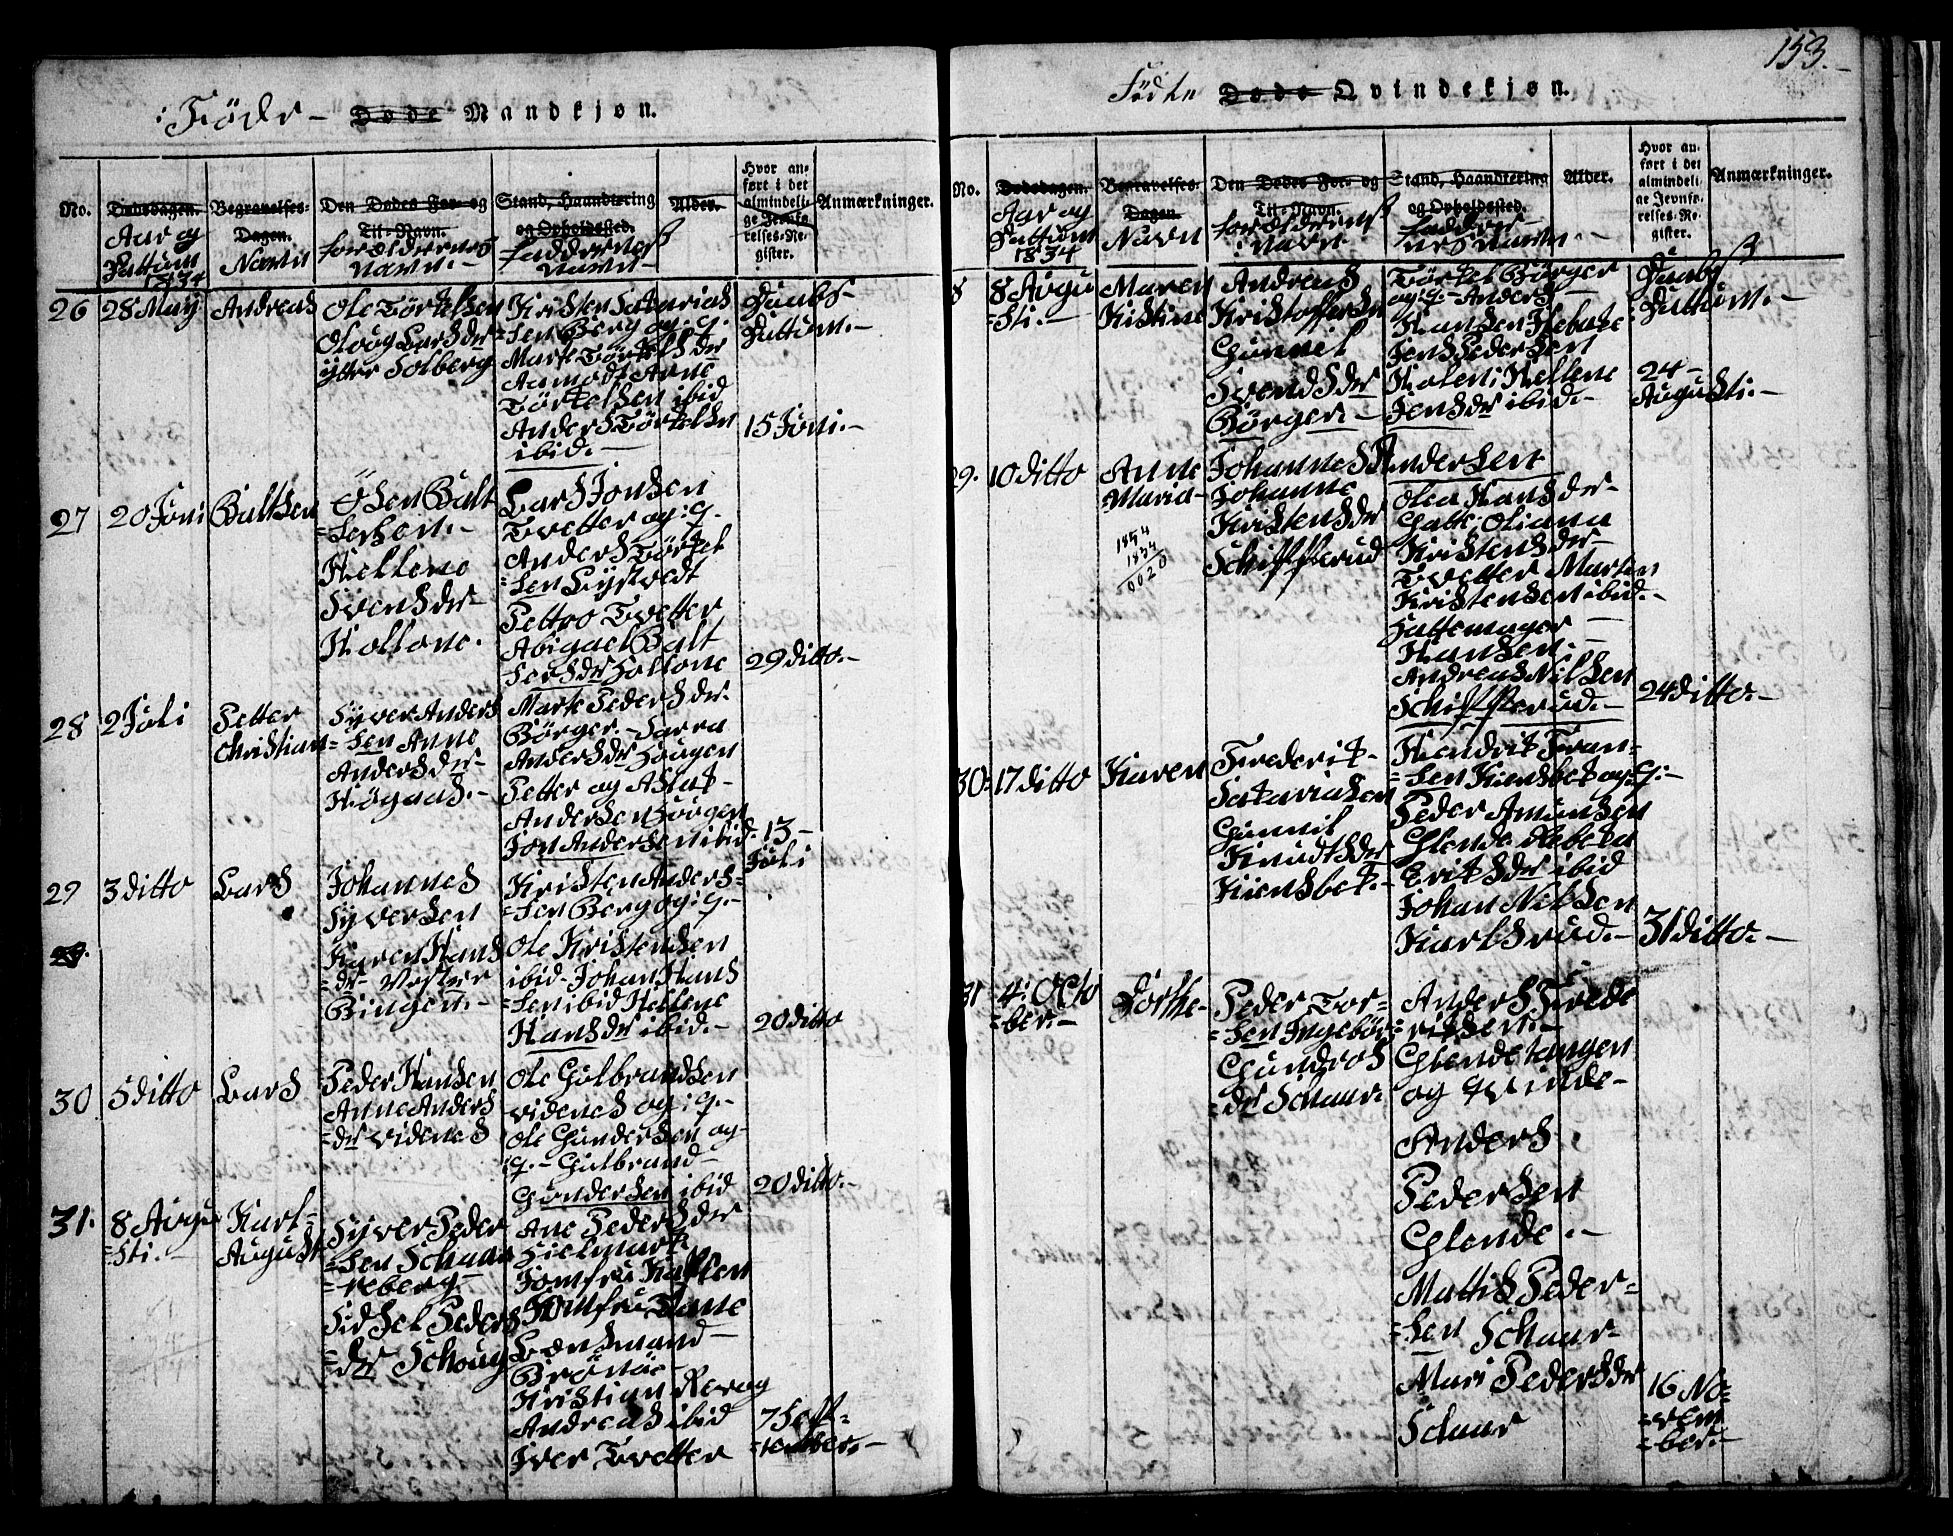 153.
Födte Døde Mandkjøn.
No.
Dødsdagen.
Aar og
Dattum
1834
Begravelses-
Dagen.
Navn
Den Dødes For- og
Til-Navn.
foræeldernes
navn.
Stand, Haandtering
og Opholdssted.
faddernes
navn
Alder.
Hvor an-
ført i det
almindeli-
ge Jevnfø-
relses-Re-
gister.
Anmærkninger.
26
28 May
Andreas
Ole Törkelsen
Oloug Larsder
ytter Solberg
Kristen Sakarias
=sen Berg og: q.
Marte Törkelsder
Aamodt Arne
Törkelsen ibid
Anders Törkelsen
ibid.
Daabs-
Dattum.
15 Joni.
27
20 Joni
Baltsen
Osen Balt
=sersen.
Hellene
Svensder
Hollone.
Lars Jonsen
Tvetter og: q.
Anders Törkel
=sen
Pettro Tvetter
Abigael Balt
sersder Hollone
29 ditto.
28
2 Joli
Petter
Christian
Syver Anders
=sen Anne
Andersder
Høgaas.
Marte Pedersder
Börger. Sarra
Andersder Hougen
Petter og Aslak
Andersen Hougen
Jon Andersen ibid.
13
Joli
29
3 ditto
Lars
Johannes
Syversen
Karen Hans
=der Vester
Bingen.
Kristen Anders=
=sen Berg og: q.
Ole Kristensen
ibid. Johan Hans
=sen ibid Hellene
Hansder ibid.
20 ditto
30
5 ditto
Lars
Peder Hansen
Anne Anders
=der Videnes
Ole Gulbrandsen
videnes og: q.
Ole Gundersen og
q. Gulbrand
Gundersen ibid
20 ditto.
31.
8 Augu
=sti.
Karl
August
Syver Peder
=sen Schaar
=reberg
Sidsel Peders
=der Schoug
Ane Pedersder
Hielmark
Jomfru
Jomfru
Lænsmand
Kristian Rer og
Andreas ibid
Iver Tvetter
7 Sept-
=tember.
Födte Døde Qvindekjøn.
No.
Dødsdagen.
Aar og
Dattum
1834
Begravelses-
Dagen.
Navn
Den Dødes For- og
Til-Navn.
forælderness
navn
Stand, Haandtering
og Opholdssted.
fadder
nes Navn.
Alder.
Hvor an-
ført i det
almindeli-
ge Jevnfø-
relses-Re-
gister.
Anmærkninger.
8
8 Augu
=sti.
Maren
Kistine
Andreas
Kristoffersen
Gunnil
Svendsder
Börger.
Törkel Börger
og: q. Anders
Hansen
Jens Pedersen
Holen: Hellene
Jensder ibid.
Daabs
Dattum.
24
Augusti.
29.
10 ditto
Anne
Maria
1854
1834
0020
Johannes Andersen
Johanne
Kristensder
Schifsterud
Olea Hansder
Oliana
Kristensder
Tvetter Marten
Kristensen ibid.
Hattemager
Hansen.
Andreas Nilsen
Schifsterud.
24 ditto.
30:
17 ditto
Karen
Frederik
Sakariasen
Gunnil
Knudtsder
Kiensbek.
Hendrik Fran-
=sen Kiensbek og: q:
Peder Amunsen
Glende Rebeka
Eriksder ibid
Johan Nilsen
Karlsrud.
31 ditto.
31
4: Octo
=ber.
Dorthe
Peder Tor=
=sen Ingebör
Gundros
=der Schaar.
Anders Frede
=riksen.
Glendetangen
og qvinde
Anders
Pedersen
Glende.
Mattis Peder=
=sen Schaar
Mari Pedersder
Schaar
16 No=
=vem
=ber.